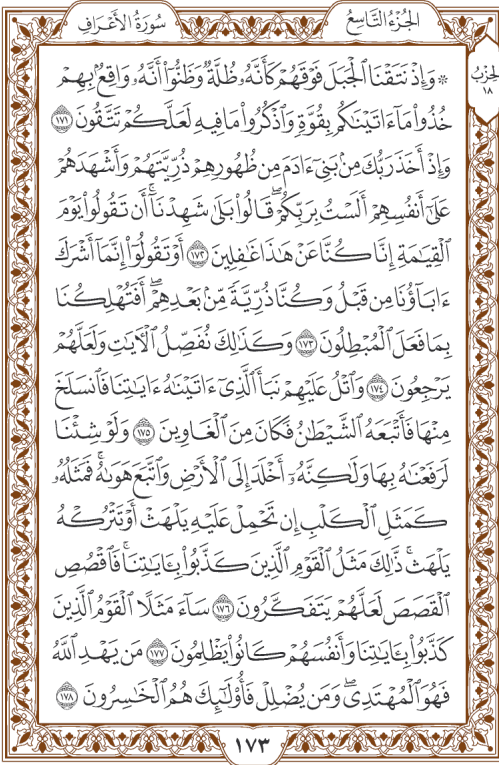 الجُزْءُ التَّاسِعُ
سُورَةُ الأَعْرَافِ
۞ وَإِذْ نَتَقْنَا ٱلْجَبَلَ فَوْقَهُمْ كَأَنَّهُۥ ظُلَّةٌ وَظَنُّوٓا۟ أَنَّهُۥ وَاقِعٌۢ بِهِمْ
خُذُوا۟ مَآ ءَاتَيْنَٰكُم بِقُوَّةٍ وَٱذْكُرُوا۟ مَا فِيهِ لَعَلَّكُمْ تَتَّقُونَ ١٧١
وَإِذْ أَخَذَ رَبُّكَ مِنۢ بَنِىٓ ءَادَمَ مِن ظُهُورِهِمْ ذُرِّيَّتَهُمْ وَأَشْهَدَهُمْ
عَلَىٰٓ أَنفُسِهِمْ أَلَسْتُ بِرَبِّكُمْ ۖ قَالُوا۟ بَلَىٰ شَهِدْنَآ ۛ أَن تَقُولُوا۟ يَوْمَ
ٱلْقِيَٰمَةِ إِنَّا كُنَّا عَنْ هَٰذَا غَٰفِلِينَ ١٧٢ أَوْ تَقُولُوٓا۟ إِنَّمَآ أَشْرَكَ
ءَابَآؤُنَا مِن قَبْلُ وَكُنَّا ذُرِّيَّةً مِّنۢ بَعْدِهِمْ ۖ أَفَتُهْلِكُنَا
بِمَا فَعَلَ ٱلْمُبْطِلُونَ ١٧٣ وَكَذَٰلِكَ نُفَصِّلُ ٱلْـَٔايَٰتِ وَلَعَلَّهُمْ
يَرْجِعُونَ ١٧٤ وَٱتْلُ عَلَيْهِمْ نَبَأَ ٱلَّذِىٓ ءَاتَيْنَٰهُ ءَايَٰتِنَا فَٱنسَلَخَ
مِنْهَا فَأَتْبَعَهُ ٱلشَّيْطَٰنُ فَكَانَ مِنَ ٱلْغَاوِينَ ١٧٥ وَلَوْ شِئْنَا
لَرَفَعْنَٰهُ بِهَا وَلَٰكِنَّهُۥٓ أَخْلَدَ إِلَى ٱلْأَرْضِ وَٱتَّبَعَ هَوَىٰهُ ۚ فَمَثَلُهُۥ
كَمَثَلِ ٱلْكَلْبِ إِن تَحْمِلْ عَلَيْهِ يَلْهَثْ أَوْ تَتْرُكْهُ
يَلْهَث ۚ ذَّٰلِكَ مَثَلُ ٱلْقَوْمِ ٱلَّذِينَ كَذَّبُوا۟ بِـَٔايَٰتِنَا ۚ فَٱقْصُصِ
ٱلْقَصَصَ لَعَلَّهُمْ يَتَفَكَّرُونَ ١٧٦ سَآءَ مَثَلًا ٱلْقَوْمُ ٱلَّذِينَ
كَذَّبُوا۟ بِـَٔايَٰتِنَا وَأَنفُسَهُمْ كَانُوا۟ يَظْلِمُونَ ١٧٧ مَن يَهْدِ ٱللَّهُ
فَهُوَ ٱلْمُهْتَدِى ۖ وَمَن يُضْلِلْ فَأُو۟لَٰٓئِكَ هُمُ ٱلْخَٰسِرُونَ ١٧٨
١٧٣
لحِزْبُ
١٨